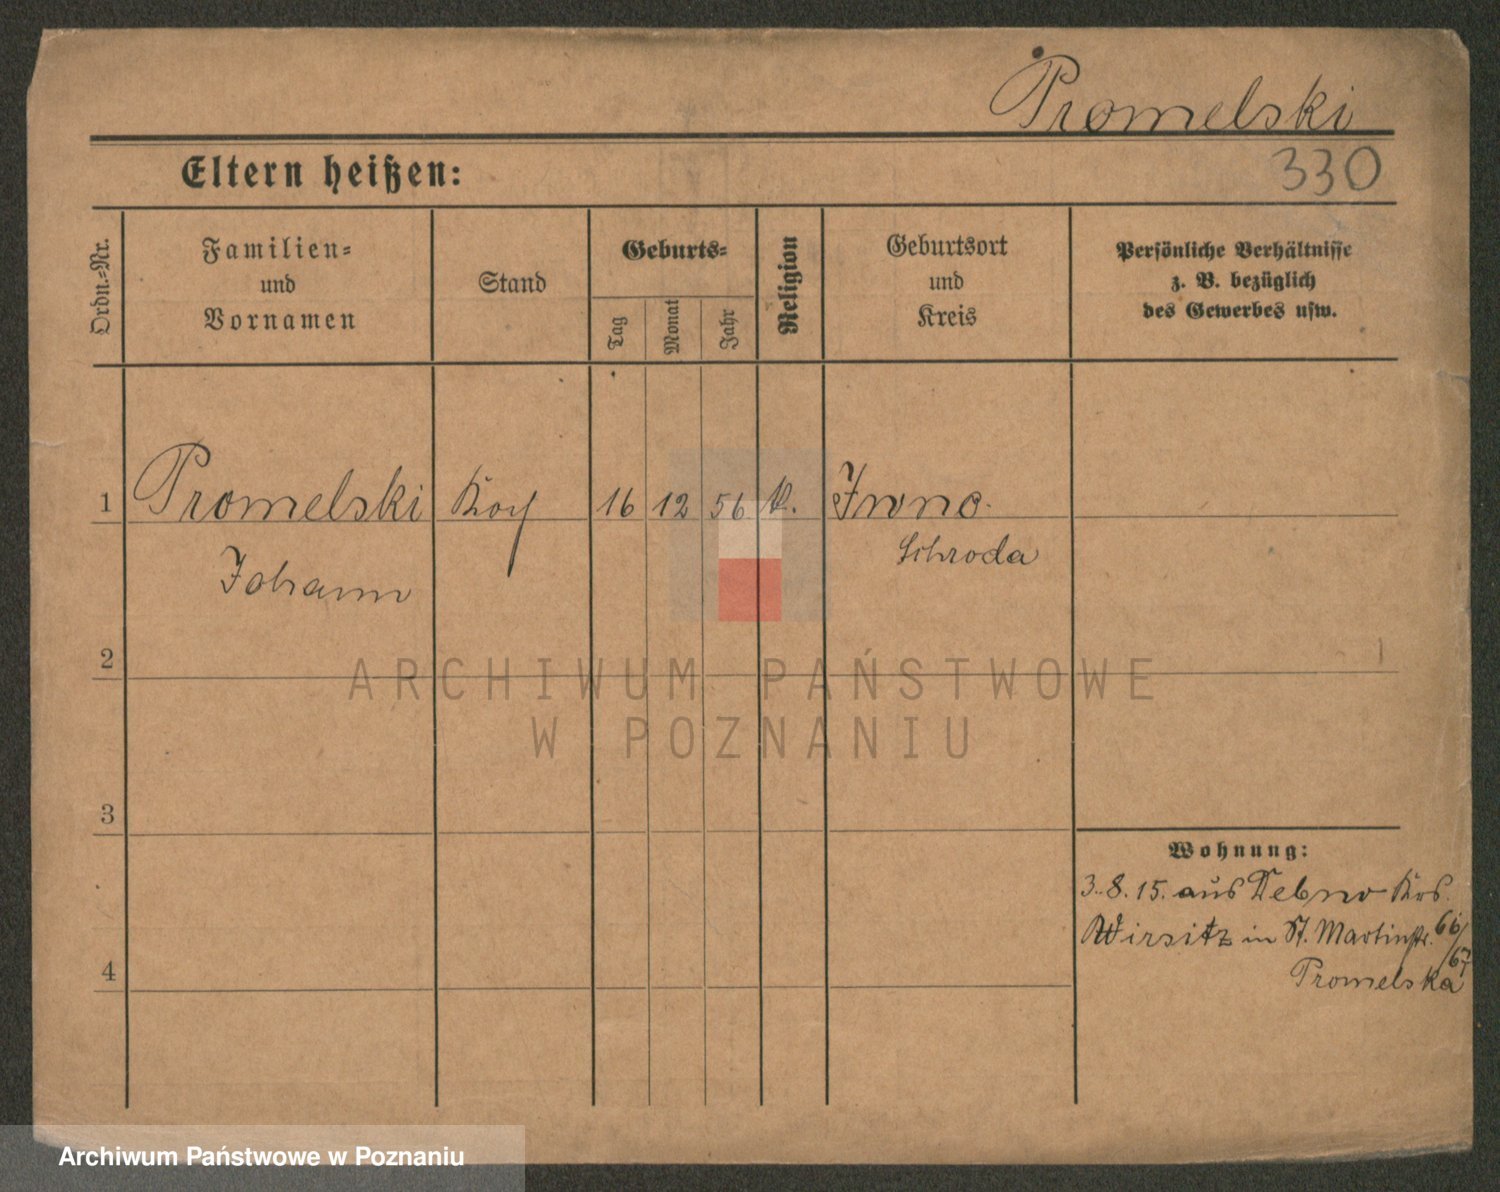 Promelski
330
Eltern heißen:
Ordn.=Nr.
Familien=
und
Vornamen
Stand
Geburts=
Tag
Monat
Jahr
Religion
Geburtsort
und
Kreis
Persönliche Verhältnisse
z. B. bezüglich
des Gewerbes usw.
1 Promelski 16 12 56 k. Iwno.
Johann Schroda
2
3
4
Wohnung:
3.8.15. aus Debno
Wirsitz in St. Martinstr. 66/
67
Promelska
ARCHIWUM PAŃSTWOWE
W POZNANIU
Archiwum Państwowe w Poznaniu